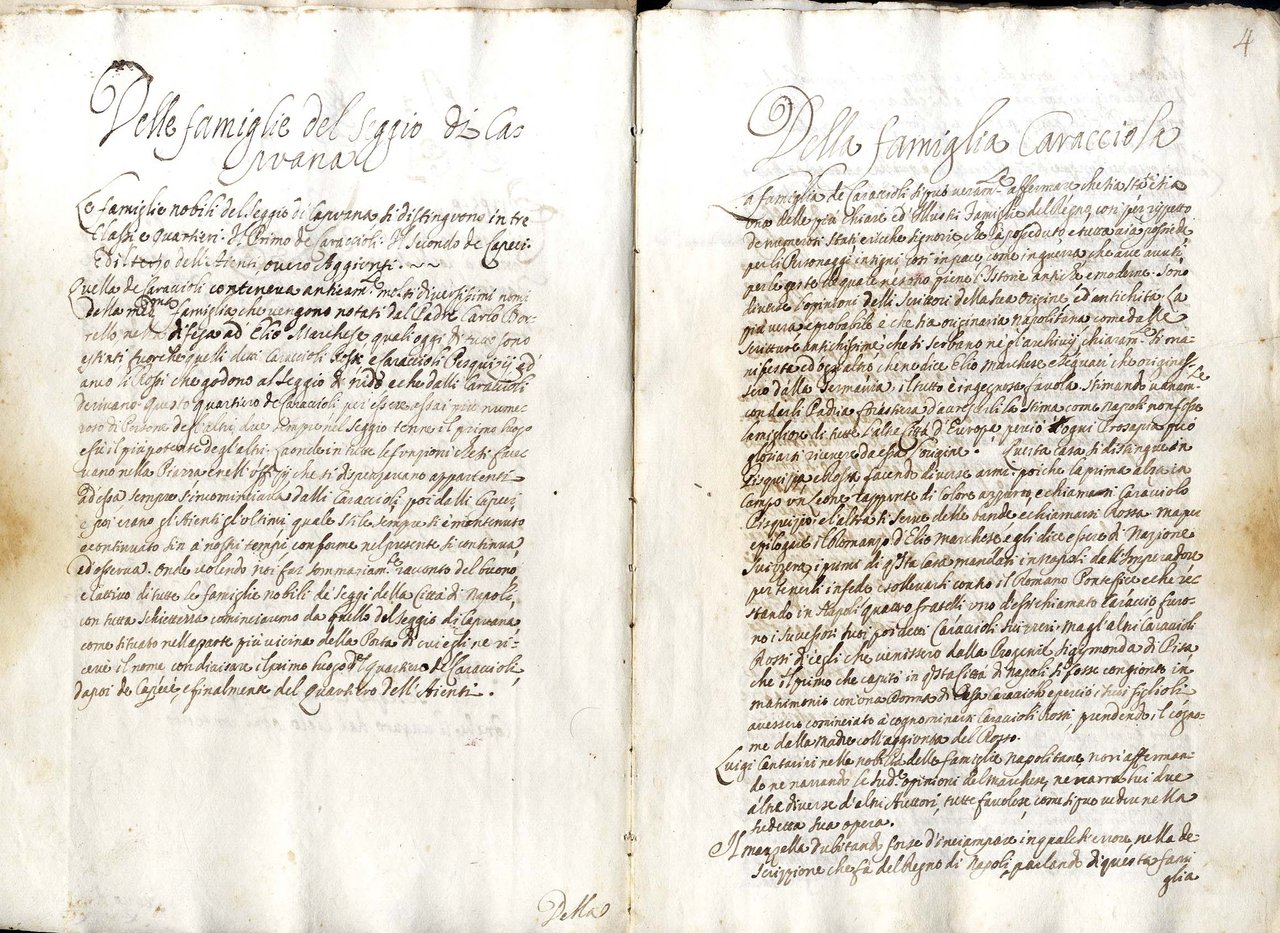 Delle famiglie del Seggio di Ca-
puana
Le famiglie nobili del Seggio di Capuana si distinguono in tre
Classi e Quartieri. Il Primo de Caraccioli. Il Secondo de Capeci
Ed il terzo dell'Aienti, overo Aggionti.
Quella de Caraccioli conteneva anticam.te molti diversissimi nomi
della med.ma famiglia che vengono notati dal Padre Carlo Bor-
rello nella difesa ad Elio Marchese quali oggi di tutto sono
estinti fuorche quelli detti Caraccioli Rossi, e Caraccioli Pisquizij ed
anco li Rossi che godono al Seggio di nido e che dalli Caraccioli
derivano. Questo quartiero de Caraccioli per essere assai più nume-
roso di Persone degl'altri due sempre nel Seggio tenne il primo luogo
e fù il più potente degl'altri. Laonde in tutte le funzioni che si face-
vano nella Piazza e nell'officij che si dispensavano appartenenti
ad essa sempre s'incominciava dalli Caraccioli, poi dalli Capeci,
e poi erano gl'Aienti gl'ultimi quale stile sempre si è mantenuto
e continuato sin à nostri tempi conforme nel presente si continua,
ed osserva. Onde volendo noi far sommariam.te racconto del buono
e cattivo di tutte le famiglie nobili de Seggi della Città di Napoli,
con tutta schiettezza cominciaremo da quello del Seggio di Capuana
come situato nella parte più vicina della Porta di cui egli ne ri-
cevè il nome con divisare il primo luogo del Quartiero de Caraccioli,
dapoi de Capeci, e finalmente del Quartiero dell'Aienti.
Della
4
Della famiglia Caracciola
La famiglia de Caraccioli si può veram.te affermare che sia stata, e sia
una delle più chiare ed Illustri famiglie del Regno, così per rispetto
de numerosi stati e ricche signorie che hà posseduto e tutta via possiede
per li Personaggi insigni così in pace come in guerra che ave avuti
per le geste de quali ne sono piene l'Istorie antiche e moderne. Sono
diverse l'opinioni delli scrittori della sua origine, ed antichità. La
più vera e probabile è che sia originaria Napolitana come dalle
scritture antichissime che si serbano ne gl'archivij chiaram.te si ma-
nifesta ed ogn'altro che ne dice Elio Marchese e seguaci che origines-
sero dalla Germania, il tutto è ingegnosa favola stimando vanam.te
con darli Patria forastiera d'accrescerli la stima come Napoli non fosse
la migliore di tutte l'altre Città d'Europa, perciò ogni Prosapia può
gloriarsi ricevere da essa l'origine. Questa casa si distingue in
Pisquizia, e Rossa facendo diverse armi. poiche la prima alza in
campo un Leone rappante di colore azzurro, e chiamansi Caracciolo
Pisquizzi, e l'altra si serve delle bande e chiamansi Rossa. ma per
epilogare il Romanzo d'Elio Marchese, egli dice essere di Nazione
Svizzera, i primi di q.sta casa mandati in Napoli dall'Imperadore
per tenerli in fede, e sollevarsi contro il Romano Pontefice, e che re-
stando in Napoli quattro fratelli uno d'essi chiamato Caraccio furo-
no i successori suoi poi detti Caraccioli Svizzeri. Ma gl'altri Caraccioli
Rossi dic'egli che venissero dalla Progenie Sigismonda di Pisa
che il primo che capitò in q.sta Città di Napoli si fosse congionto in
matrimonio con una donna di Casa Caracciolo e perciò i suoi figlioli
avessero cominciato à cognominarsi Caraccioli Rossi, prendendo il cogno-
me dalla Madre coll'aggionta del Rosso.
Luigi Contarini nella nobiltà delle famiglie Napolitane, non affirman-
do ne narrando le sud.e opinioni del Marchese, ne narra lui due
altre diverse d'altri Auttori, tutte favolose, come si può vedere nella
sudetta sua opera.
Il Mazzella dubitando forse d'inciampare in qualche errore, nella de-
scrizzione che fà del Regno di Napoli, parlando di questa fami
glia